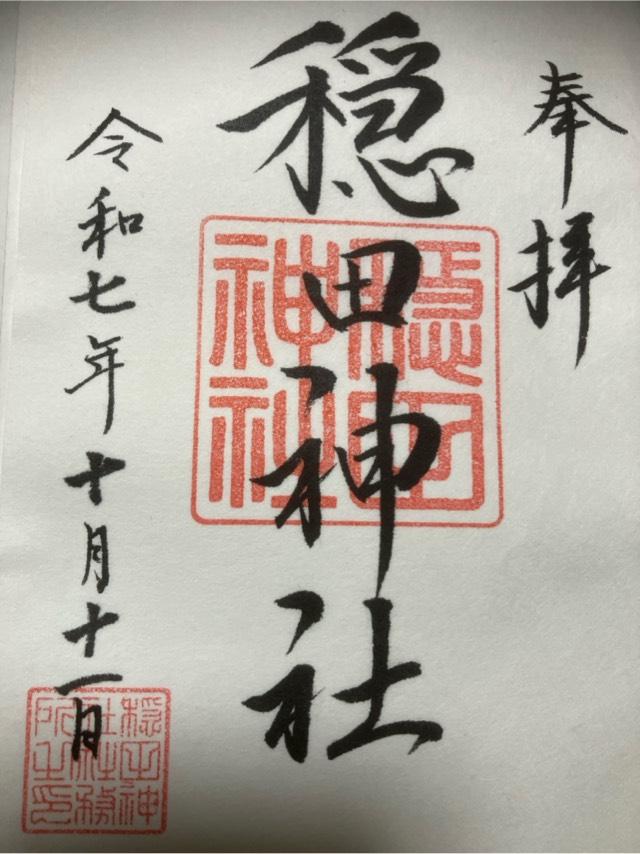 奉拝
穏田神社
穏田神社
令和七年十月十一日
穏田神
社社務
所之印